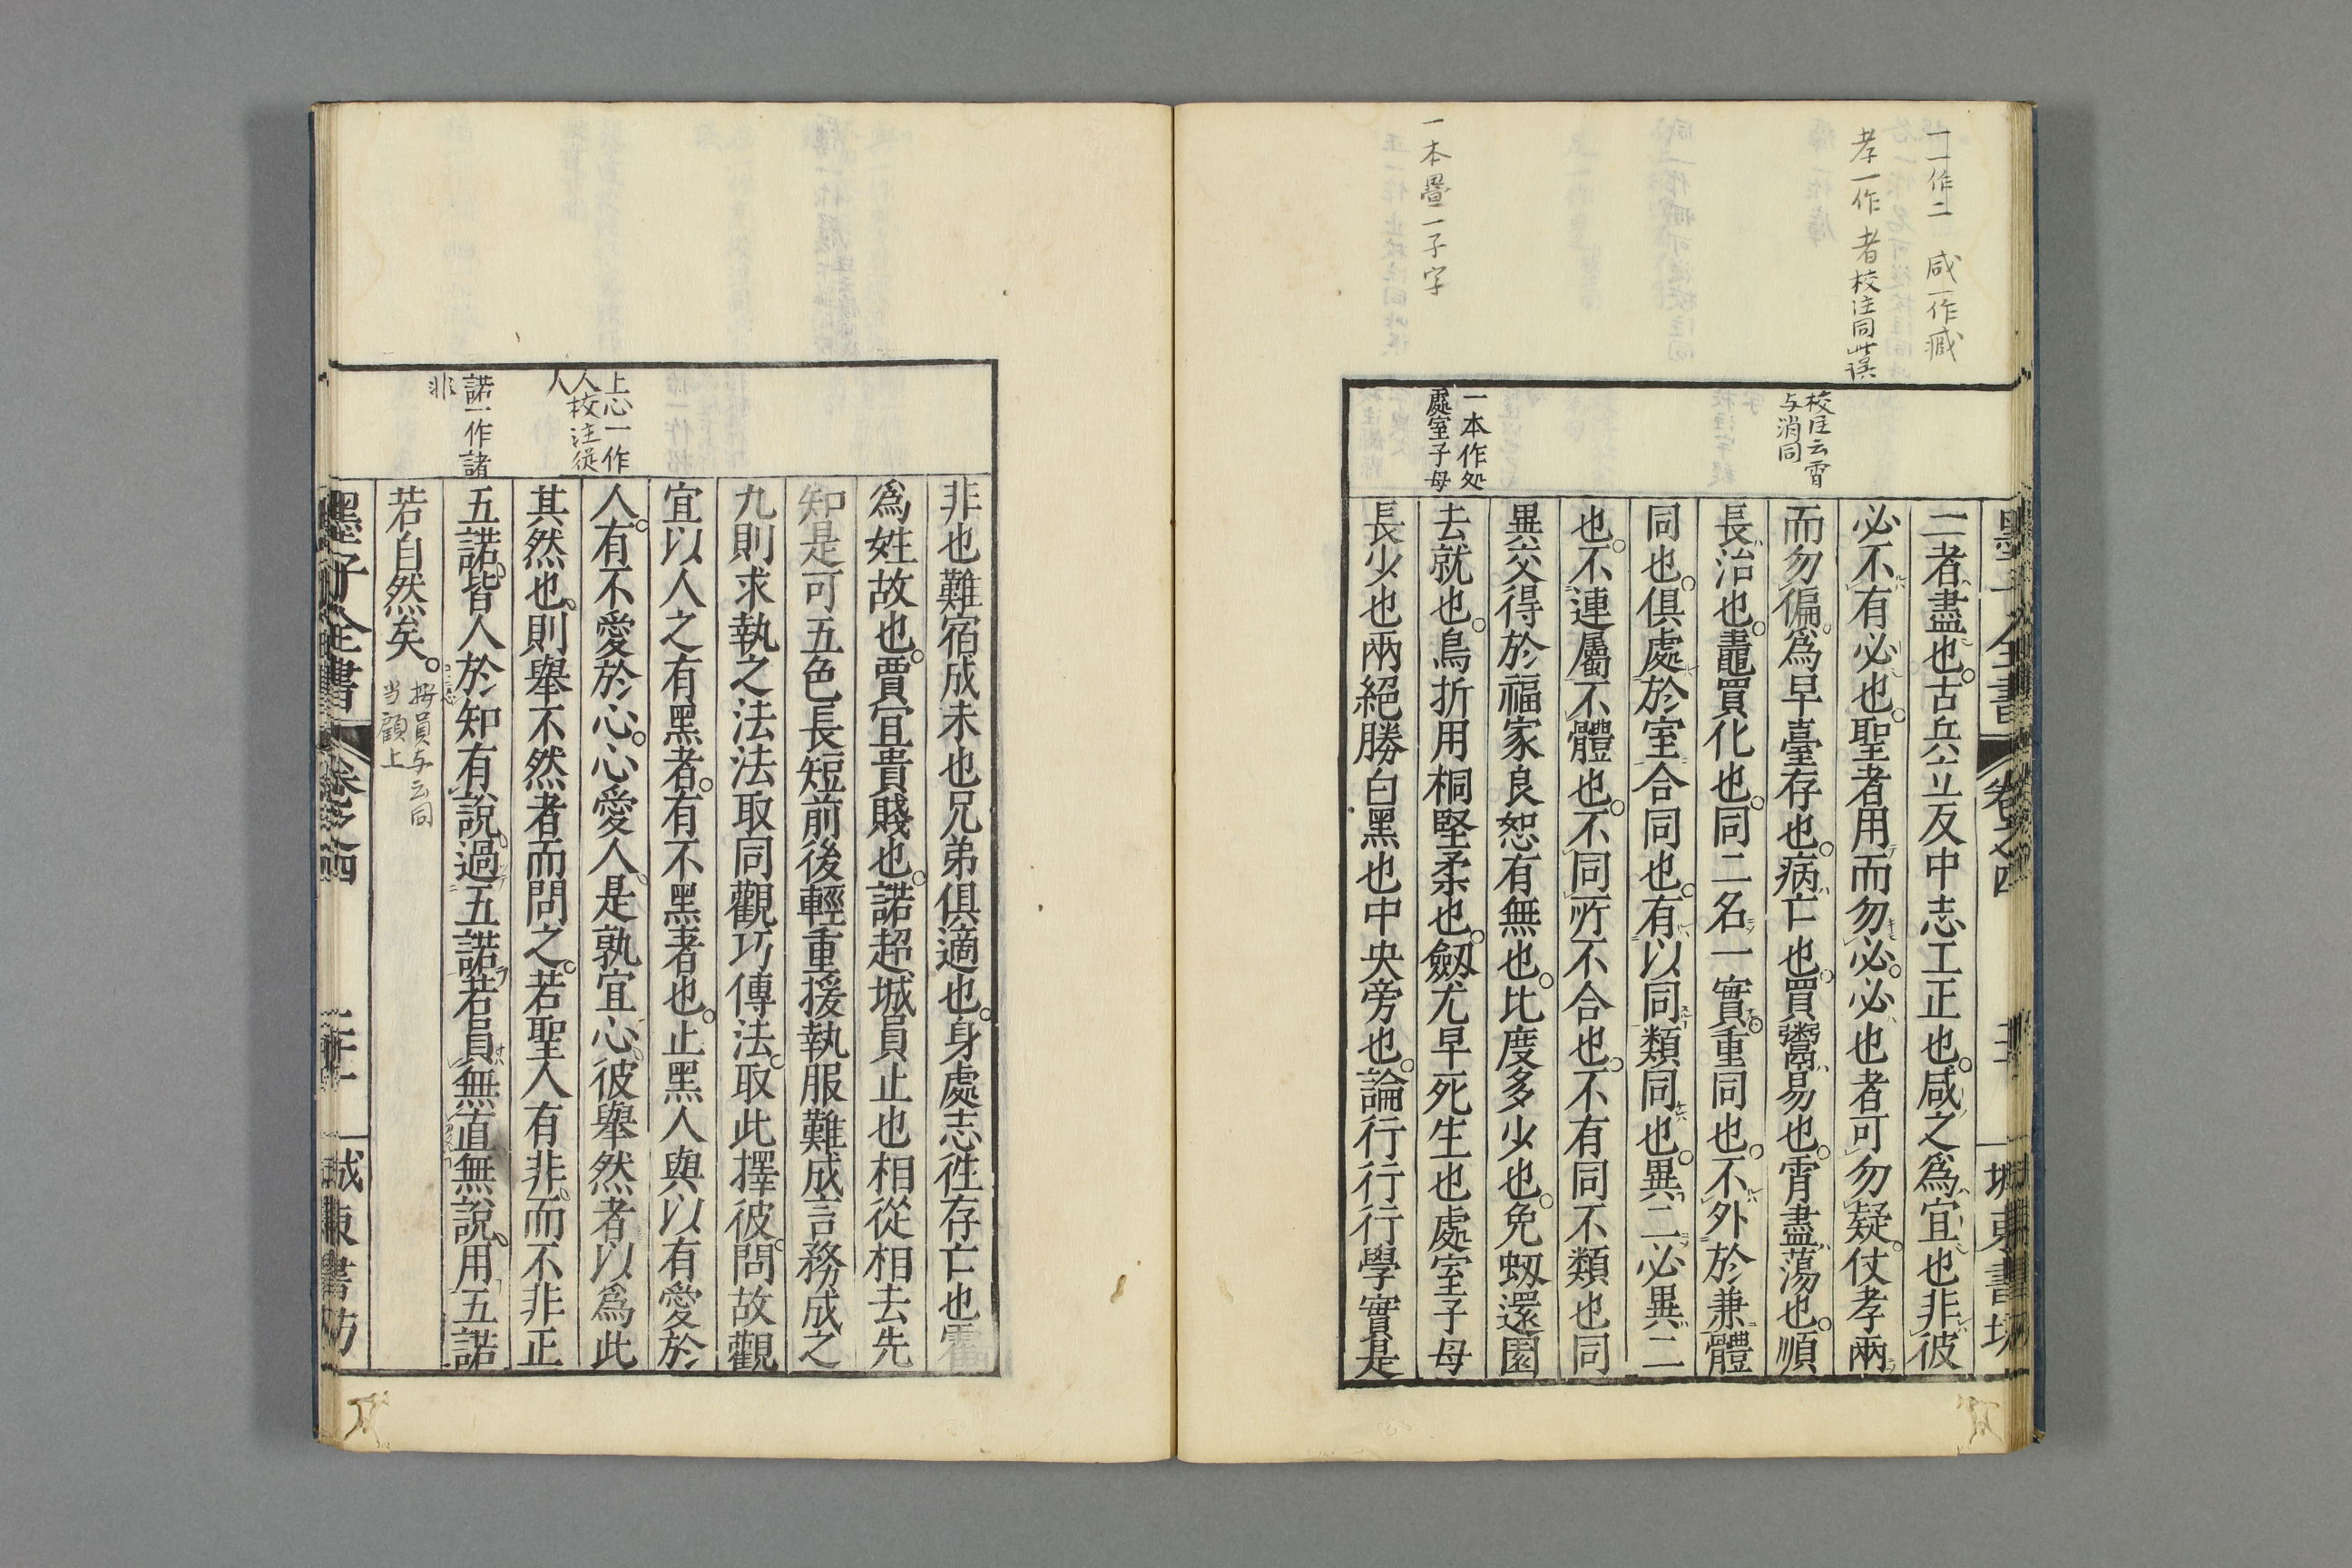 一一作二　咸一作臧
孝一作者校注同此誤
一本疊一子字
校注云霄
与消同
一本作処
處室子母
二者盡也古兵立反中志工正也咸之爲宜也非彼
必不有必也聖者用而勿必必也者可勿疑仗孝兩
而勿偏爲早臺存也病亡也買鬻易也霄盡蕩也順
長治也鼃買化也同二名一實重同也不外於兼體
同也俱處於室合同也有以同類同也異二必異二
也不連屬不體也不同所不合也不有同不類也同
異交得於福家良恕有無也比度多少也免蚓還園
去就也鳥折用桐堅柔也劔尤早死生也處室子母
長少也兩絕勝白黑也中央旁也論行行行學實是
上心一作
人校注從
人
諾一作諸
非
非也難宿成未也兄弟俱適也身處志徃存亡也霍
爲姓故也賈宜貴賤也諾超城員止也相從相去先
知是可五色長短前後輕重援執服難成言務成之
九則求執之法法取同觀巧傳法取此擇彼問故觀
宜以人之有黑者有不黑者也止黑人與以有愛於
人有不愛於心心愛人是孰宜心彼舉然者以爲此
其然也則舉不然者而問之若聖人有非而不非正
五諾皆人於知有說過五諾若員無直無說用五諾
若自然矣
按員与云同
当顧上
墨子全書　卷之四　城東書坊